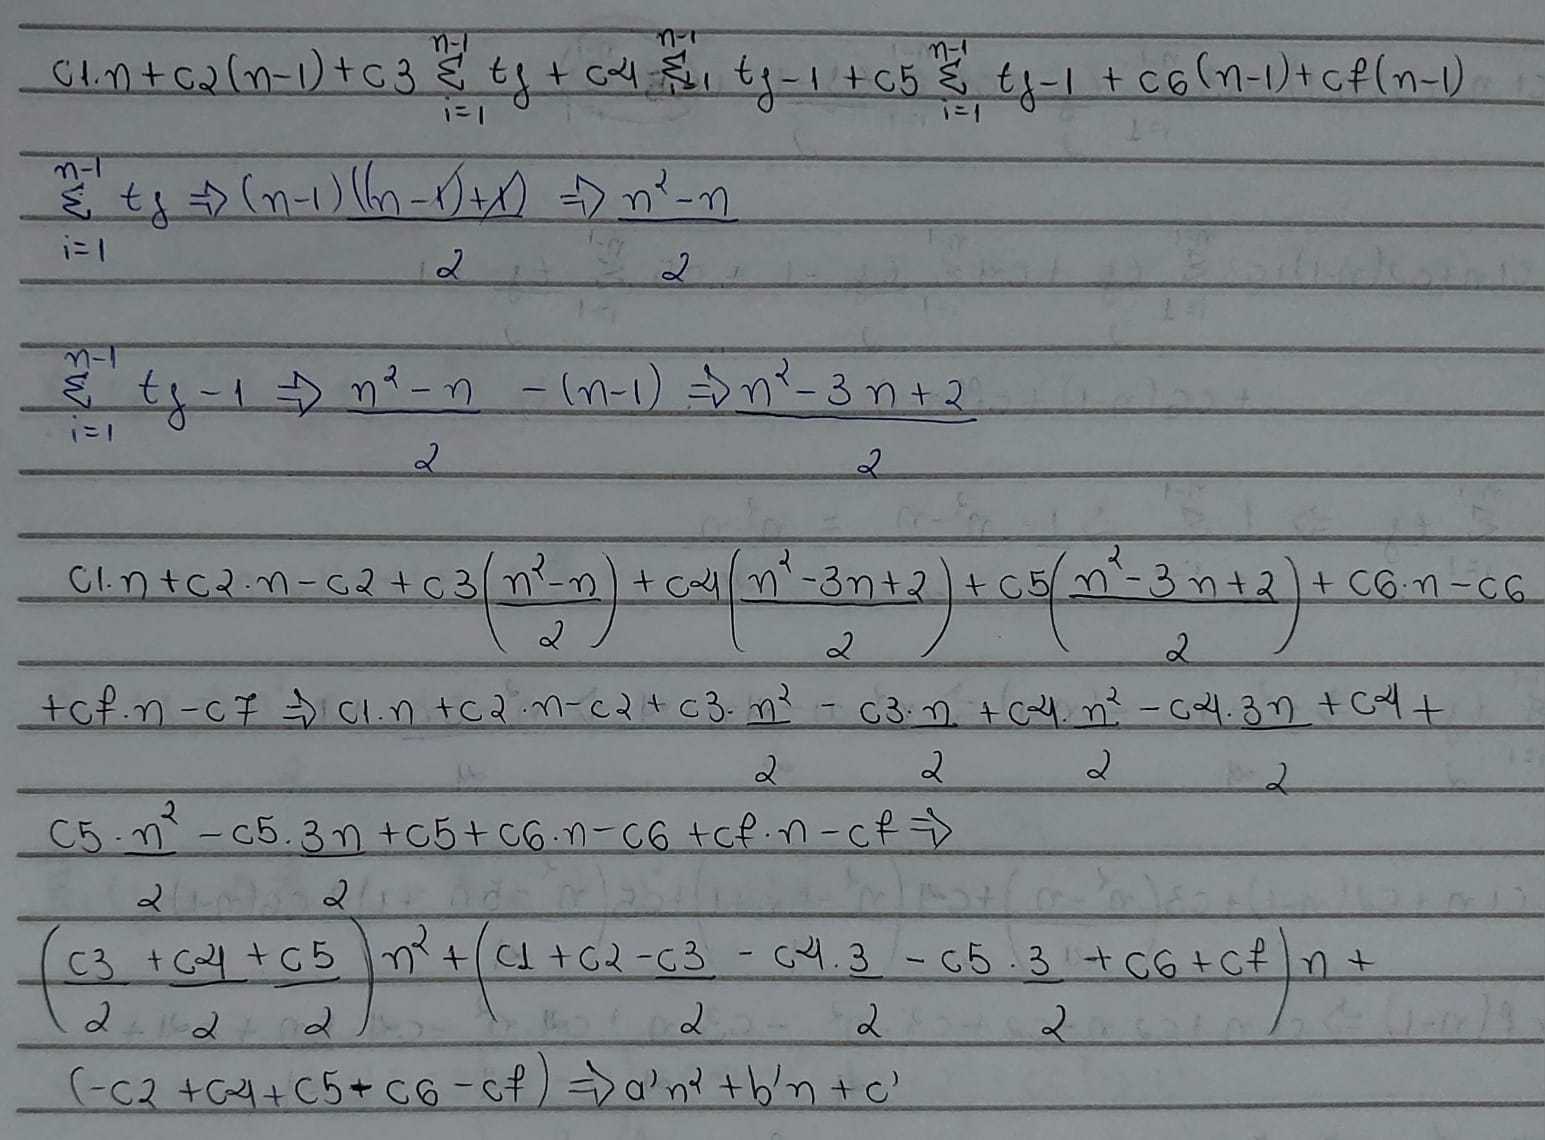 c1.n+c2(n-1)+c3 n-1 Σ i=1 tj + c4 n-1 Σ i=1 tj-1 + c5 n-1 Σ i=1 tj-1 + c6(n-1)+c7(n-1)
n-1 Σ i=1 tj ⇒ (n-1)((n-1)+1)/2 ⇒ n²-n/2
n-1 Σ i=1 tj-1 ⇒ n²-n/2 -(n-1) ⇒ n²-3n+2/2
c1.n+c2.n-c2+c3(n²-n/2)+c4(n²-3n+2/2)+c5(n²-3n+2/2)+c6.n-c6
+c7.n-c7 ⇒ c1.n+c2.n-c2+c3.n²/2 - c3.n/2 + c4.n²/2 - c4.3n/2 + c4 +
c5.n²/2 -c5.3n/2 +c5+c6.n-c6+c7.n-c7 ⇒
(c3/2 + c4/2 + c5/2)n²+(c1+c2-c3/2 - c4.3/2 - c5.3/2 +c6+c7)n+
(-c2+c4+c5-c6-c7) ⇒ a'n²+b'n+c'